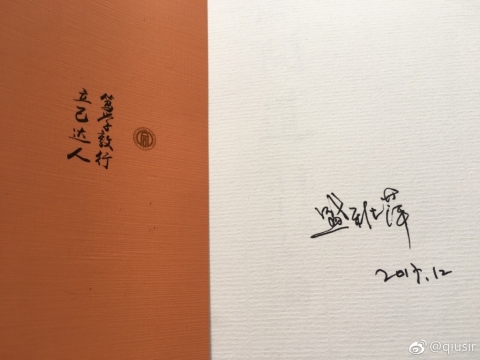 笃学敦行
立己达人
盛
2017.12
@qiusir